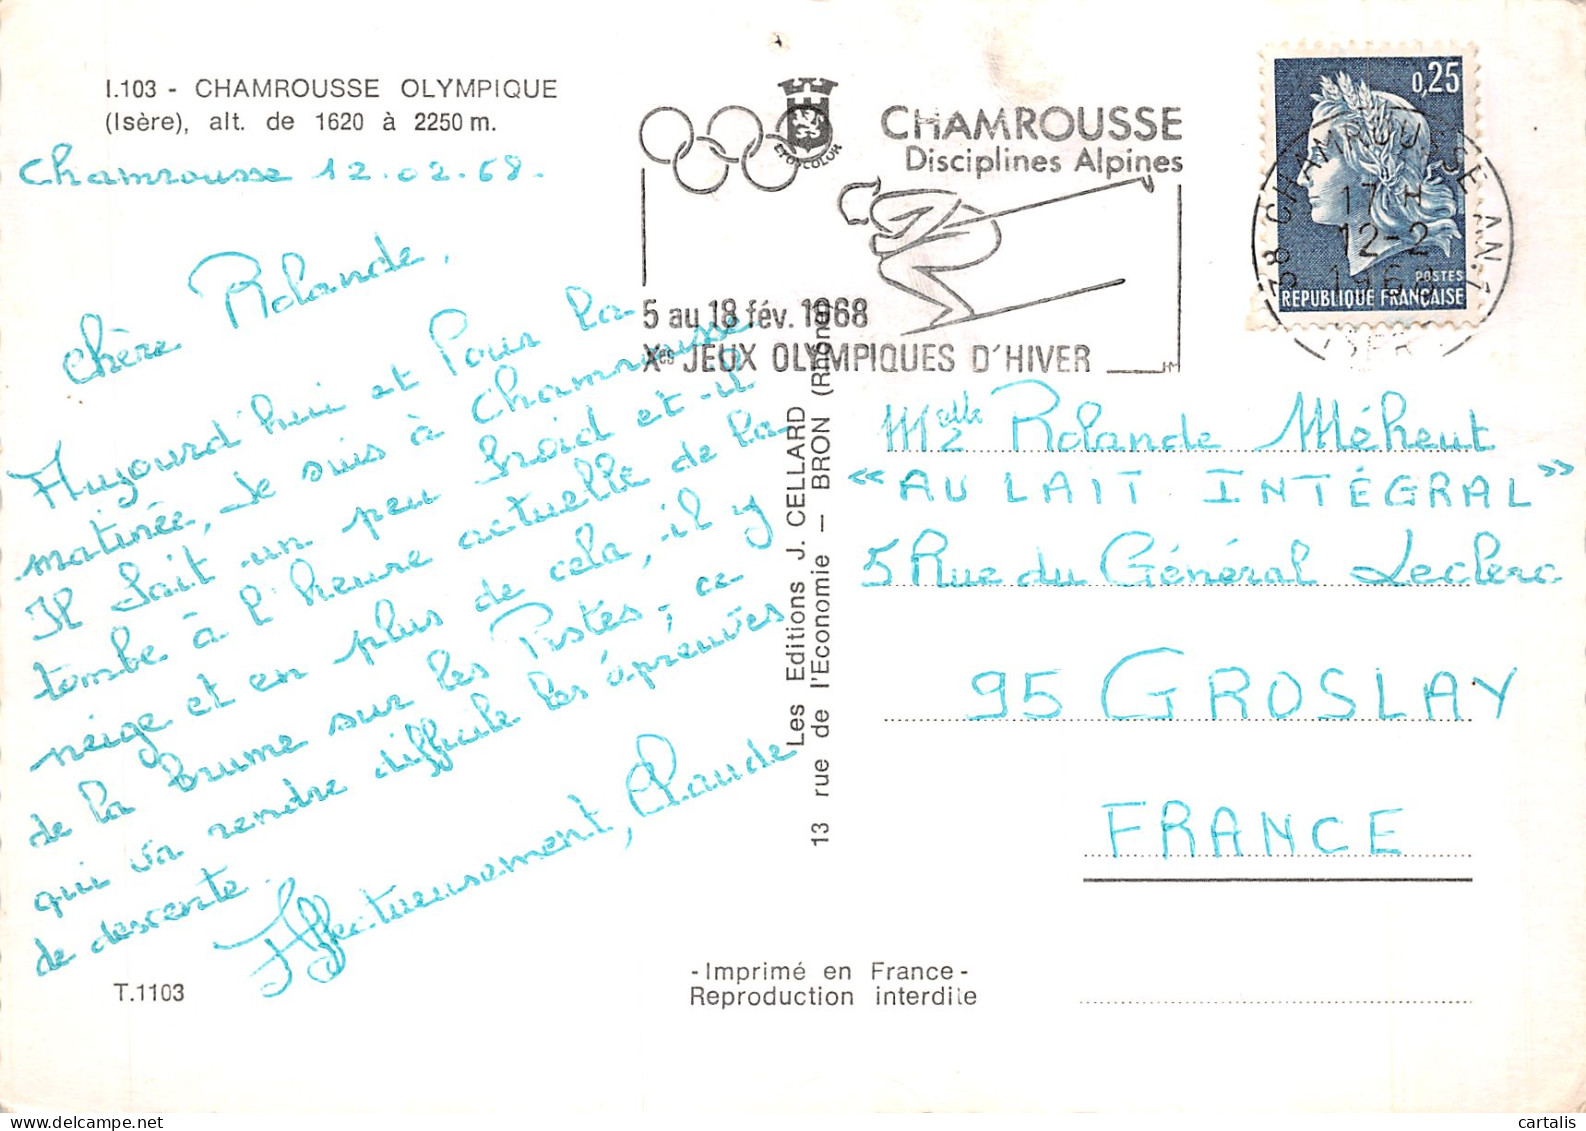 I.103 - CHAMROUSSE OLYMPIQUE
(Isère), alt. de 1620 à 2250 m.
Chamrousse 12.02.68.
Chère Rolande,
Aujourd'hui et Pour la
matinée, Je suis à Chamrousse
Il fait un peu froid et il
tombe à l'heure actuelle de la
neige et en plus de cela, il y
de la brume sur les Pistes, ce
qui va rendre difficile les épreuves
de descente.
Affectueusement, Claude
T.1103
CHAMROUSSE
Disciplines Alpines
EPOXCOLOR
5 au 18 fév. 1968
Xes JEUX OLYMPIQUES D'HIVER
HM
0,25
POSTES
REPUBLIQUE FRANÇAISE
38 CHAMROUSSE AN. 1
17 H
12-2
1968
ISERE
Les Editions J. CELLARD
13 rue de l'Economie — BRON (Rhône)
Melle Rolande Méheut
« AU LAIT INTÉGRAL »
5 Rue du Général Leclerc
95 GROSLAY
FRANCE
- Imprimé en France -
Reproduction interdite
cartalis